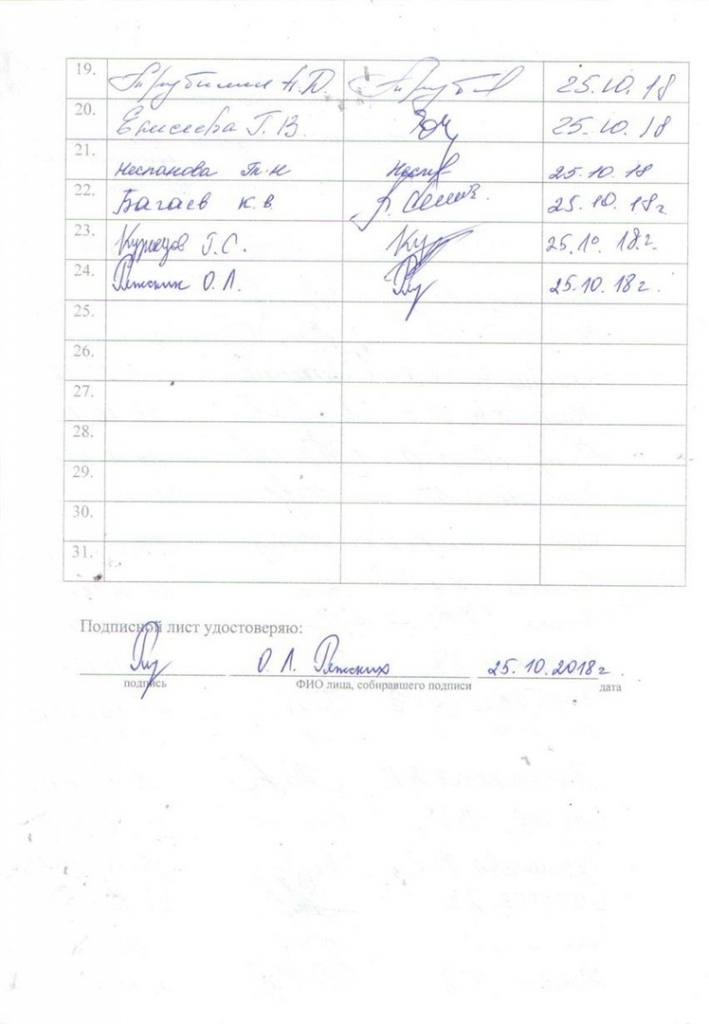 19. Трубилин А.Д. 25.10.18
20. Елисеева Г.В. 25.10.18
21. Неспанова 25.10.18
22. Багаев К.В. 25.10.18г
23. Кузнецов Г.С. 25.10.18.г.
24. О.Л. 25.10.18г.
25.
26.
27.
28.
29.
30.
31.
Подписной лист удостоверяю:
О. Л. Ряжских 25.10.2018г.
подпись ФИО лица, собиравшего подписи дата